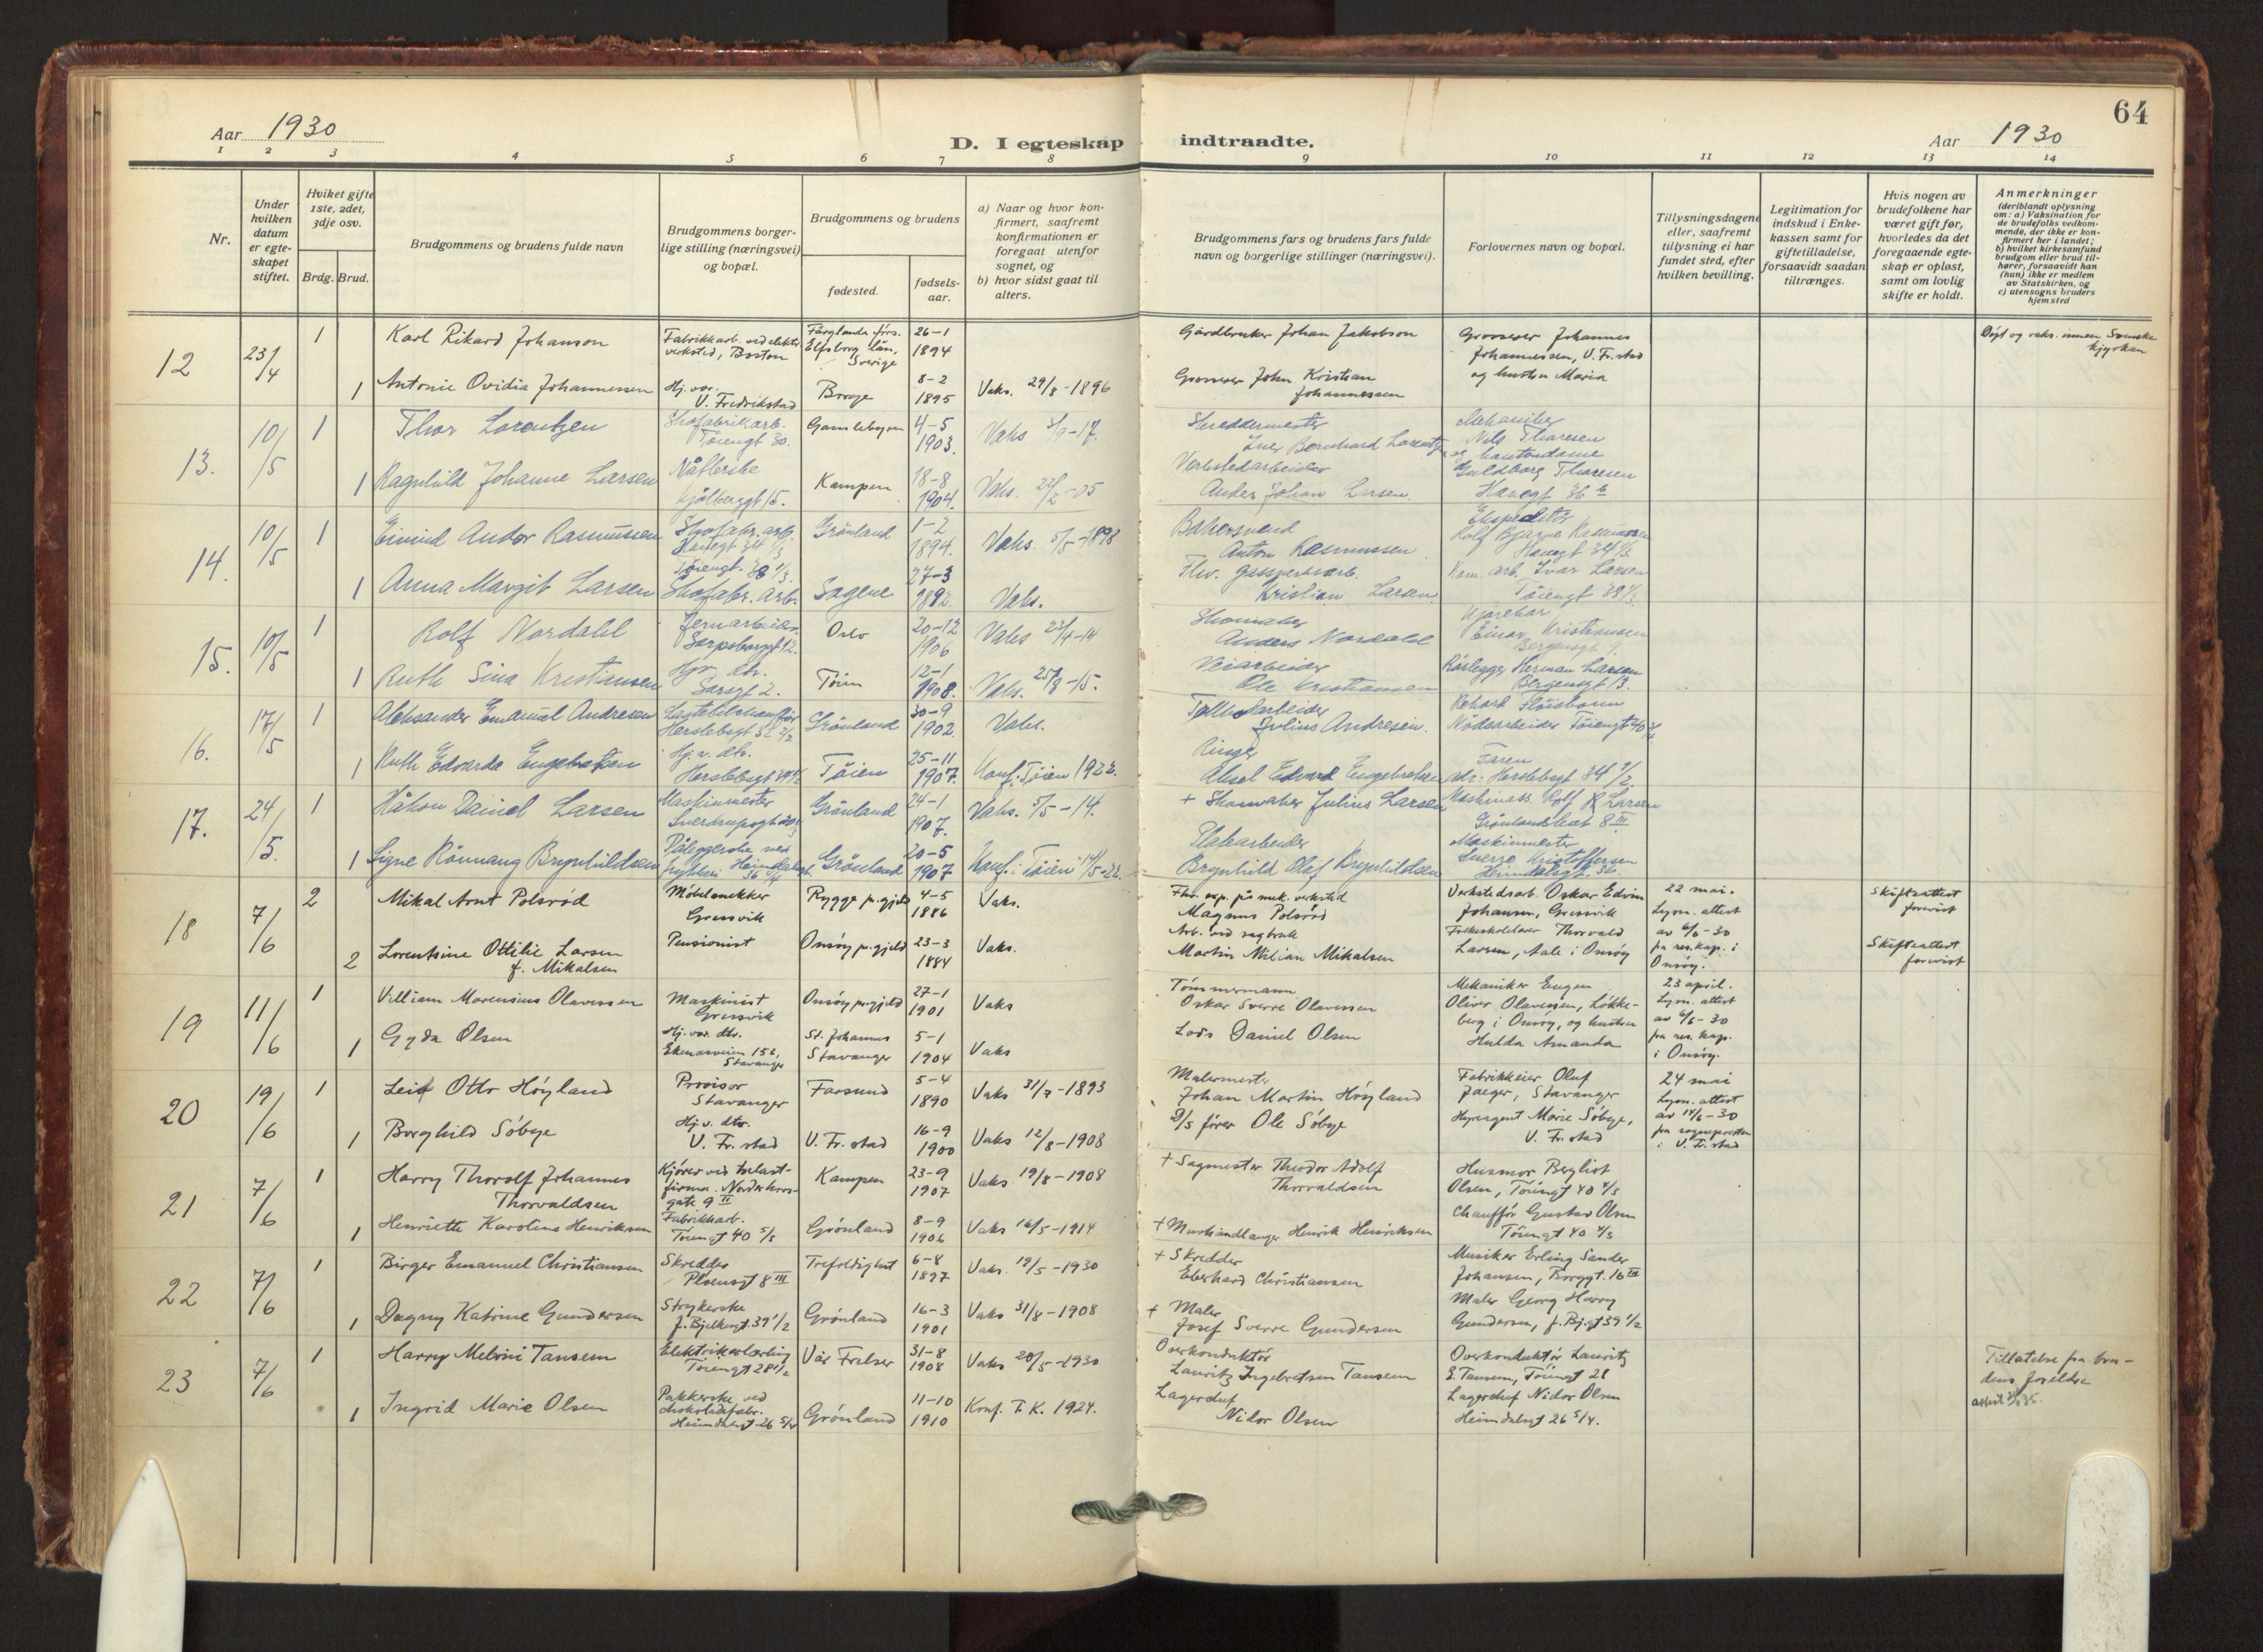 64
Aar 1930
D. I egteskap indtraadte.
Aar 1930
1 2 3 4 5 6 7 8 9 10 11 12 13 14
Nr.
Under hvilken datum er egteskapet stiftet.
Hvilket gifte 1ste, 2det, 3dje osv.
Brdg. Brud.
Brudgommens og brudens fulde navn
Brudgommens borgerlige stilling (næringsvei) og bopæl.
Brudgommens og brudens
fødested.
fødselsaar.
a) Naar og hvor konfirmert, saafremt konfirmationen er foregaat utenfor sognet, og
b) hvor sidst gaat til alters.
Brudgommens fars og brudens fars fulde navn og borgerlige stillinger (næringsvei).
Forlovernes navn og bopæl.
Tillysningsdagene eller, saafremt tillysning ei har fundet sted, efter hvilken bevilling.
Legitimation for indskud i Enkekassen samt for giftetilladelse, forsaavidt saadan tiltrænges.
Hvis nogen av brudefolkene har været gift før, hvorledes da det foregaaende egteskap er opløst, samt om lovlig skifte er holdt.
Anmerkninger (deriblandt oplysning om: a) Vaksination for de brudefolks vedkommende, der ikke er konfirmert her i landet; b) hvilket kirkesamfund brudgom eller brud tilhører, forsaavidt han (hun) ikke er medlem av Statskirken, og c) utensogns bruders hjemsted
12 23/4 1 Karl Rikard Johanson
Fabrikkarb. ved elektr. verksted, Boston
Elfsborg län, Sverige
26-1 1894
Gårdbruker Johan Jakobson
Grosserer Johannes Johannessen, V. Fr.stad og hustru Maria
Døpt og vaks. innen Svenske kyrkan
1 Antonie Ovidia Johannessen
Hj. vær. V. Fredrikstad
Borge
8-2 1895
Vaks. 29/8-1896
Grosserer John Kristian Johannessen
13. 10/5 1 Thor Lorentzen
Skofabrikarb. Tøiengt 30.
Gamlebyen
4-5 1903.
Skreddermester
Bernhard Lorentzen
Mekaniker Nils Thoresen
Guldborg Thoresen
1 Ragnhild Johanne Larsen
Kjølberggt 15.
Kampen
18-8 1904.
Vaks. 22/2-05
Verkstedarbeider Anders Johan Larsen
14. 10/5 1 Eivind Andor Rasmussen
Skofabr. arb.
Grønland
1-2 1894.
Vaks. 5/5-1898
Bakersvend Anton Rasmussen
Ekspeditør Rolf Bjarne Rasmussen
1 Anna Margit Larsen
Tøiengt. 38 1/3. Skofabr. arb.
Sagene
27-3 1892.
Vaks.
Fhv. gassverksarb. Kristian Larsen
Kom. arb. Ivar Larsen Tøiengt 38 1/3
15. 10/5 1 Rolf Nordahl
Jernarbeider. Sarpsborggt 12.
Oslo
20-12 1906
Vaks 23/4-14
Skomaker Anders Nordahl
Einar Kristiansen
1 Ruth Sina Kristiansen
Tøien
12-1 1908.
Vaks. 25/8-15.
Veiarbeider Ole Kristiansen
Rørlegger Herman Larsen Bergensgt 13.
16. 17/5 1 Aleksander Emanuel Andresen
Grønland
30-9 1902.
Vaks.
Julius Andresen.
1 Ruth Edvarda Engebretsen
Hj. v. dtr.
Tøien
25-11 1907.
Konf. Tøien 1922.
Ringer Aksel Edvard Engebretsen
Faren adr: Herslebsgt 34 4/2
17. 24/5. 1 Håkon Daniel Larsen
Maskinmester
Grønland
24-1 1907.
Vaks. 5/5-14.
+ Skomaker Julius Larsen
Maskinass. Rolf R Larsen
Grønlandsleiret 8 III
1 Signe Rönnaug Brynhildsen
Grønland
20-5 1907
Konf. i Tøien 14/5-22.
Platearbeider Brynhild Olaf Brynhildsen
Maskinmester Sverre Kristoffersen
Heimdalsgt. 36.
18 7/6 2 Mikal Arnt Polsrød
Møbelsnekker Gressvik
Rygge pr.gjeld
4-5 1886
Vaks.
Magnus Polsrød
Verkstedsarb. Oskar Edvin Johansen, Gressvik
22 mai. Lysn. attest av 6/6-30 fra res. kap. i Onsøy.
Skifteattest forevist
2 Lorentsine Ottilie Larsen f. Mikalsen
Pensionist
Onsøy pr.gjeld
23-3 1884
Vaks.
Arb. ved sagbruk Martin Milian Mikalsen
Folkeskolelærer Thorvald Larsen, Aale i Onsøy
Skifteattest forevist
19 11/6 1 Villiam Marensius Olavessen
Maskinist Gressvik
Onsøy pr.gjeld
27-1 1901
Vaks
Tömmermann Oskar Sverre Olavessen
Mekaniker Eugen Oliver Olavessen, Løkkeberg i Onsøy, og hustru Hulda Amanda
23 april. Lysn. attest av 6/6-30 fra res. kap. i Onsøy.
1 Gyda Olsen
Hj. vær. dtr. Stavanger
St. Johannes Stavanger
5-1 1904
Vaks
Lods Daniel Olsen
20 19/6 1 Leif Otto Höyland
Provisor Stavanger
Farsund
5-4 1890
Vaks 31/7-1893
Malermester Johan Martin Höyland
Fabrikkeier Olaf Jaeger, Stavanger
24 mai Lysn. attest av 14/6-30 fra sognepresten i V. Fr.stad
1 Borghild Söbye
Hj. v. dtr. V. Fr. stad
V. Fr. stad
16-9 1900
Vaks 12/8-1908
D/S fører Ole Söbye
Marie Söbye, V. Fr. stad
21 7/6 1 Harry Thorolf Johannes Thorvaldsen
Kampen
23-9 1907
Vaks 19/8-1908
+ Sagmester Theodor Adolf Thorvaldsen
Husmor Bergliot Olsen, Töiengt 40 4/3
1 Henriette Karoline Henriksen
Fabrikkarb. Töiengt 40 5/3
Grønland
8-9 1906
Vaks 16/5-1914
+ Murhandlanger Henrik Henriksen
Chauffør Gustav Olsen Töiengt 40 4/3
22 7/6 1 Birger Emanuel Christiansen
Skredder Pløensgt 8 III
Trefoldighet
6-8 1897
Vaks. 19/5-1930
+ Skredder Eberhard Christiansen
Musiker Erling Sander Johansen, Borggt. 16 III
1 Dagny Katrine Gundersen
Strykerske J. Bjelkesgt. 39 1/2
Grønland
16-3 1901
Vaks 31/8-1908
+ Maler Josef Sverre Gundersen
Maler Georg Harry Gundersen, J. Bj.gt 39 1/2
23 7/6 1 Harry Melvin Tansem
Elektrikerlærling Töiengt 28 1/2
Vår Frelser
31-8 1908
Vaks 20/5-1930
Overkonduktör Lauritz Ingebretsen Tansem
Overkonduktör Lauritz E. Tansem, Töiengt 28
Tillatelse fra brudens foreldre
1 Ingrid Marie Olsen
Pakkerske ved chokoladefabr. Heimdalsgt 26 5/4
Grønland
11-10 1910
Konf. T. K. 1924.
Lagerchef Nidor Olsen
Lagerchef Nidor Olsen Heimdalsgt 26 5/4.